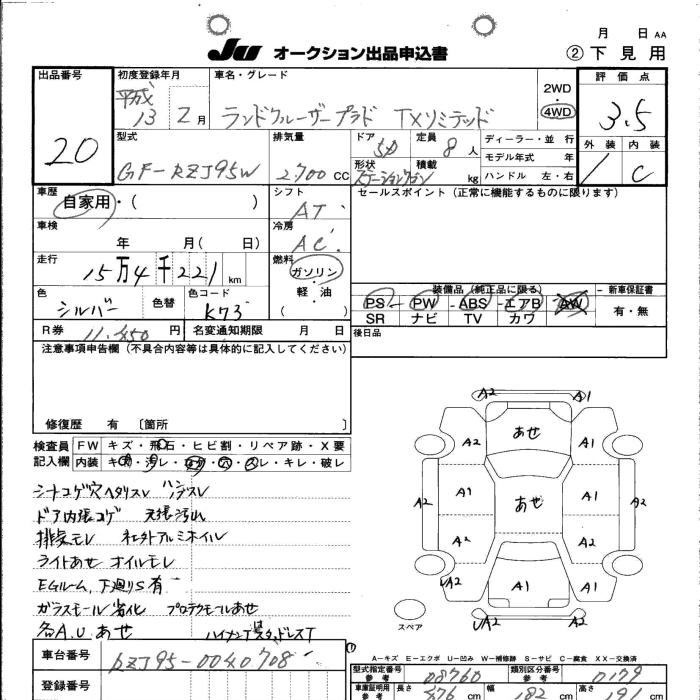 月 日 AA
JU オークション出品申込書 ②下見用
出品番号
20
初度登録年月
平成
13 2月
車名・グレード
ランドクルーザープラド TXリミテッド
2WD
4WD
評価点
3.5
型式
GF-RZJ95W
排気量
2,700 cc
ドア
5D
定員
8人
形状
ステーションワゴン
積載
kg
ディーラー・並行
モデル年式 年
ハンドル 左・右
外装 内装
C
車歴
自家用・( )
シフト
AT
セールスポイント(正常に機能するものに限ります)
車検
年 月( 日)
冷房
AC
走行
15万4千221 km
燃料
ガソリン
軽・油
( )
色
シルバー
色替
色コード
K73
装備品(純正品に限る)
新車保証書
PS PW ABS エアB AW
SR ナビ TV カワ
有・無
R券 11,450円
名変通知期限 月 日
後日品
注意事項申告欄(不具合内容等は具体的に記入してください)
修復歴 有 〔箇所 〕
検査員
記入欄
FW キズ・飛石・ヒビ割・リペア跡・X要
内装 ・キレ・破レ
シートコゲ穴ヘタリスレ ハンドスレ
ドア内張コゲ 天張汚レ
排気モレ 社外アルミホイル
ライトあせ オイルモレ
EGルーム、下廻りS有
ガラスモール劣化 プロテクモールあせ
各A.U あせ
A2 A1
A2 あせ A1
A2 A1 あせ A1 A2
A2 A2
A2 A1 A2
A2 A2
スペア
A-キズ E-エクボ U-凹み W-補修跡 S-サビ C-腐食 XX-交換済
車台番号
RZJ95-0040708
登録番号
型式指定番号
参考
08760
類別区分番号
参考
0179
車庫証明用
参考
長さ 476 cm 幅 182 cm 高さ 191 cm